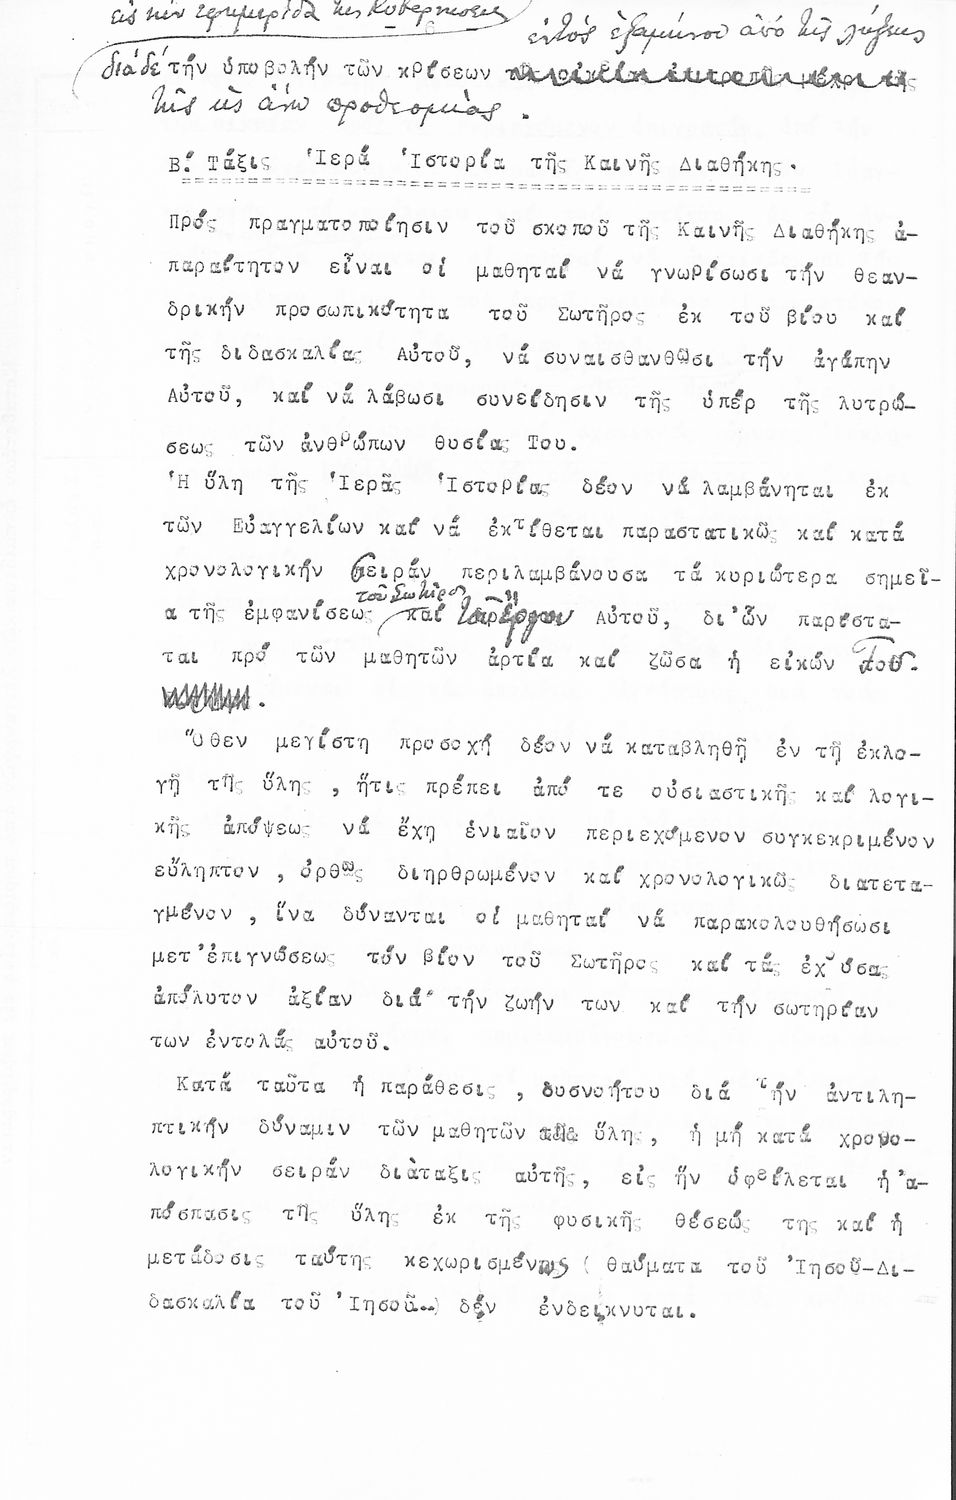 εἰς τήν ἐφημερίδα τῆς Κυβερνήσεως
ἐντός ἑξαμήνου ἀπό τῆς λήξεως
διά δέ τήν ὑποβολήν τῶν κρίσεων
τῆς ὡς ἄνω προθεσμίας.
Β΄. Τάξις Ἱερά Ἱστορία τῆς Καινῆς Διαθήκης.
Πρός πραγματοποίησιν τοῦ σκοποῦ τῆς Καινῆς Διαθήκης ἀ-
παραίτητον εἶναι οἱ μαθηταί νά γνωρίσωσι τήν θεαν-
δρικήν προσωπικότητα τοῦ Σωτῆρος ἐκ τοῦ βίου καί
τῆς διδασκαλίας Αὐτοῦ, νά συναισθανθῶσι τήν ἀγάπην
Αὐτοῦ, καί νά λάβωσι συνείδησιν τῆς ὑπέρ τῆς λυτρώ-
σεως τῶν ἀνθρώπων θυσίας Του.
Ἡ ὕλη τῆς Ἱερᾶς Ἱστορίας δέον νά λαμβάνηται ἐκ
τῶν Εὐαγγελίων καί νά ἐκτίθεται παραστατικῶς καί κατά
χρονολογικήν σειράν περιλαμβάνουσα τά κυριώτερα σημεῖ-
τοῦ Σωτῆρος
α τῆς ἐμφανίσεως καί τῶν ἔργων Αὐτοῦ, δι'ὧν παρίστα-
ται πρό τῶν μαθητῶν ἀρτία καί ζῶσα ἡ εἰκών Του.
Ὅθεν μεγίστη προσοχή δέον νά καταβληθῇ ἐν τῇ ἐκλο-
γῇ τῆς ὕλης , ἥτις πρέπει ἀπό τε οὐσιαστικῆς καί λογι-
κῆς ἀπόψεως νά ἔχη ἑνιαῖον περιεχόμενον συγκεκριμένον
εὔληπτον , ὀρθῶς διηρθρωμένον καί χρονολογικῶς διατετα-
γμένον , ἵνα δύνανται οἱ μαθηταί νά παρακολουθήσωσι
μετ'ἐπιγνώσεως τόν βίον τοῦ Σωτῆρος καί τάς ἐχούσας
ἀπόλυτον ἀξίαν διά τήν ζωήν των καί τήν σωτηρίαν
των ἐντολάς αὐτοῦ.
Κατά ταῦτα ἡ παράθεσις , δυσνοήτου διά τήν ἀντιλη-
πτικήν δύναμιν τῶν μαθητῶν ὕλης, ἡ μή κατά χρονο-
λογικήν σειράν διάταξις αὐτῆς, εἰς ἥν ὀφείλεται ἡ ἀ-
πόσπασις τῆς ὕλης ἐκ τῆς φυσικῆς θέσεώς της καί ἡ
μετάδοσις ταύτης κεχωρισμένως ( θαύματα τοῦ Ἰησοῦ-Δι-
δασκαλία τοῦ Ἰησοῦ..) δέν ἐνδείκνυται.